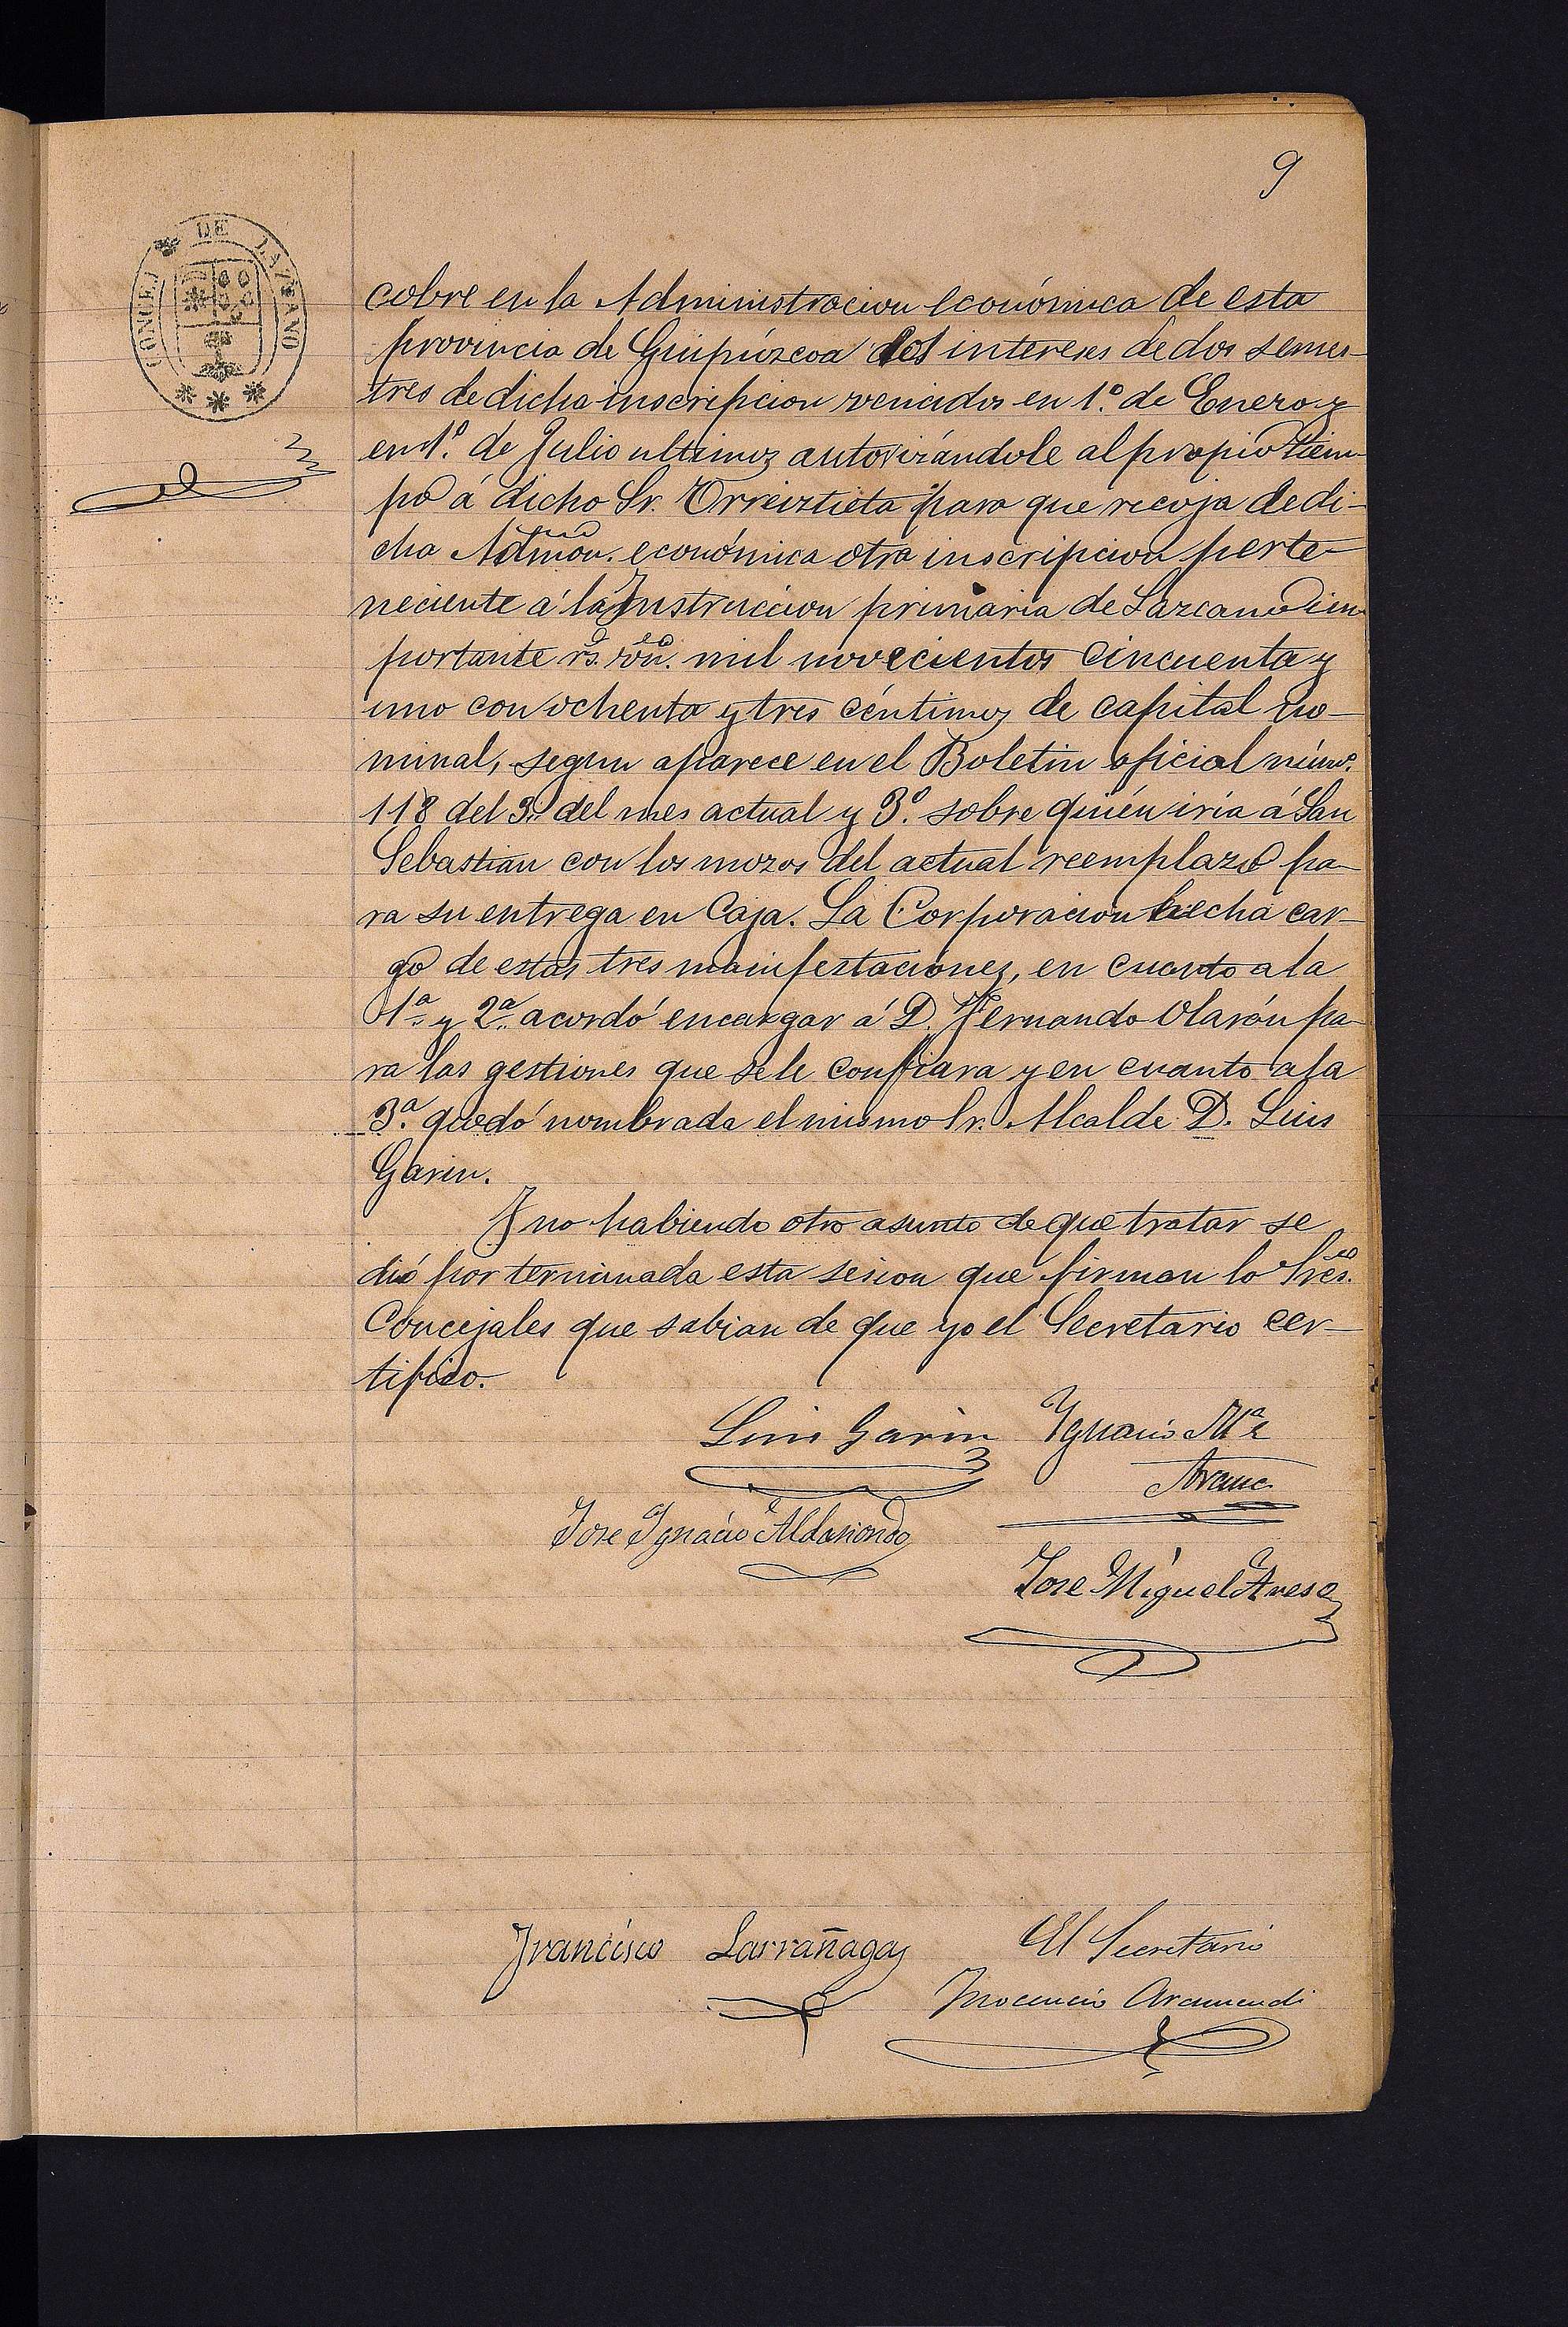 9
CONCEJ DE LAZCANO
cobre en la Administracion económica de esta
provincia de Guipúzcoa los intereses de dos semes-
tres de dicha inscripcion vencidos en 1.º de Enero y
en 1.º de Julio ultimos autorizándole al propio tiem-
po á dicho Sr. para que recoja de di-
cha Admon. económica otra inscripcion perte-
neciente á la Instruccion primaria de Lazcano im
portante rs. von. mil novecientos cincuenta y
uno con ochenta y tres céntimos de capital no-
minal, segun aparece en el Boletin oficial núm.
118 del 3 del mes actual y 3.º sobre quién iría á San
Sebastian con los mozos del actual reemplazo pa-
ra su entrega en Caja. La Corporacion hecha car-
go de estas tres manifestaciones, en cuanto a la
1.ª y 2.ª acordó encargar á D. Fernando Olarán pa-
ra las gestiones que se le confiara y en cuanto a la
3.ª quedó nombrada el mismo Sr. Alcalde D. Luis
Garin.
Y no habiendo otro asunto de que tratar se
dió por terminada esta sesion que firman lo Sres.
Concejales que sabian de que yo el Secretario cer-
tifico.
Luis Garin Ignacio Mª
Arana
Jose Ignacio Aldasiondo
Jose Miguel
Francisco Larrañaga El Secretario
Inocencio Aramendi